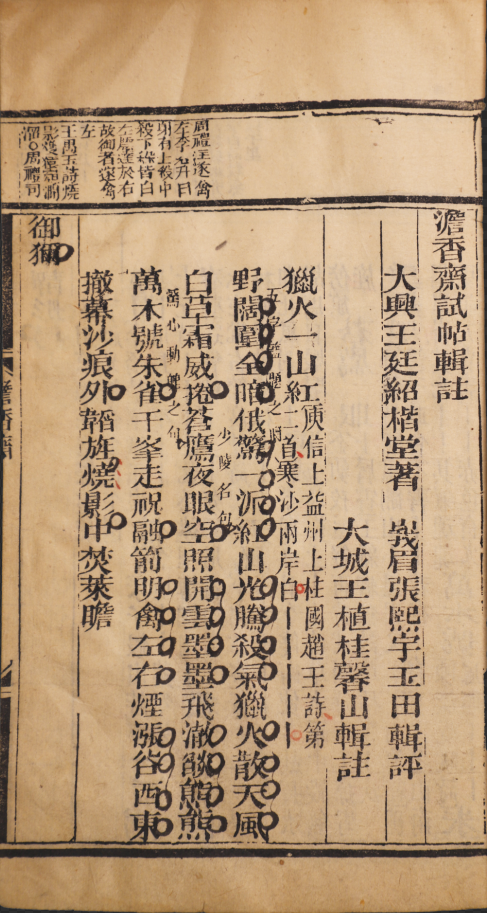 澹香齋試帖輯註
大興王廷紹楷堂著　峩眉張熙宇玉田輯評
大城王植桂馨山輯註
獵火一山紅
庾信上益州上柱國趙王詩第
二首寒沙兩岸白
野闊圍全暗俄驚一派紅山光騰殺氣獵火散天風
少陵名句
白草霜威捲蒼鷹夜眼空照開雲墨墨飛澈燄熊熊
驚心動魄之句
萬木號朱雀千峯走祝融箭明禽左右煙漲谷西東
撤幕沙痕外韜旌燒影中焚萊瞻
御獮
周禮注逐禽
左李
射有上殺中
殺下殺皆自
左膘達於右
故御者逐禽
左
王禹玉詩燒
溜○周禮司